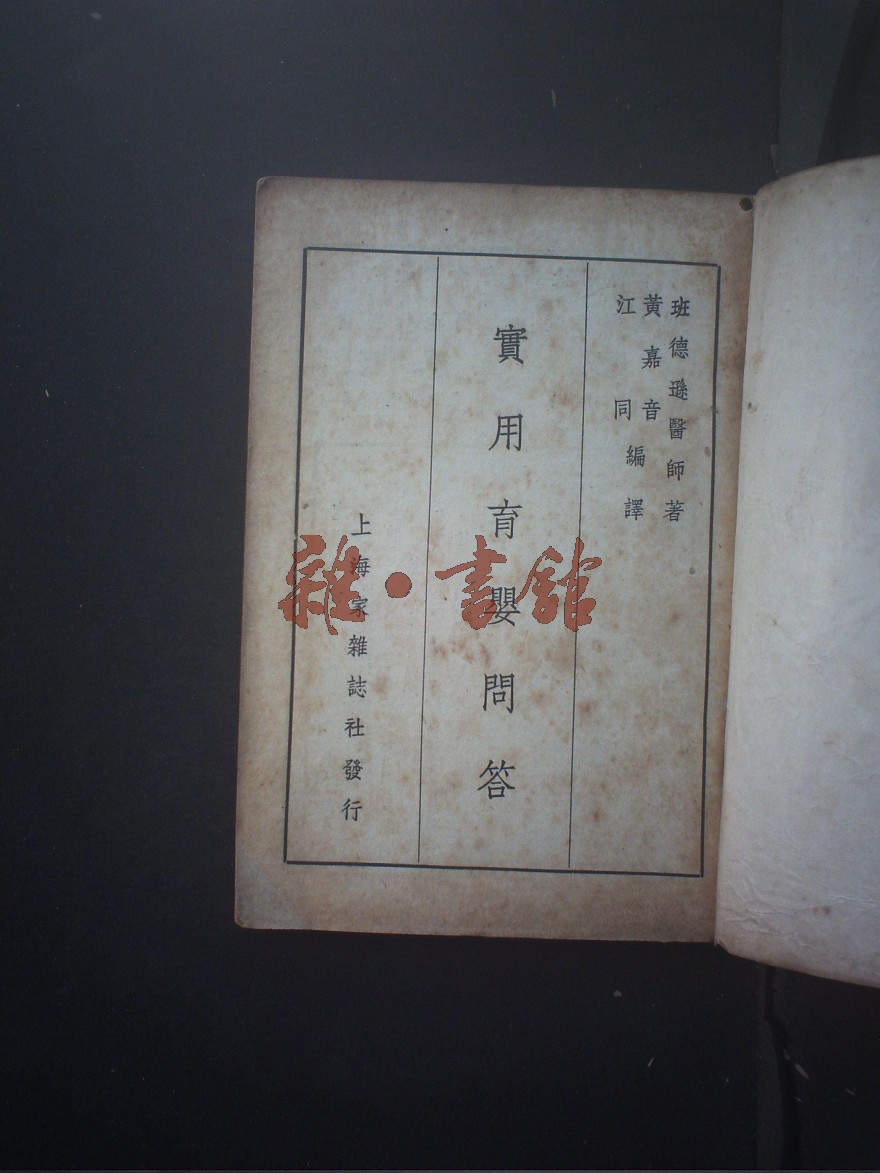 班德遜醫師著
黃嘉音
江同
編譯
實用育嬰問答
上海家雜誌社發行
雜·書館